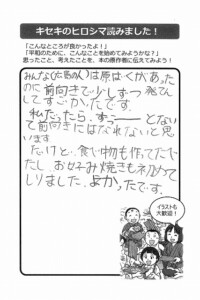 キセキのヒロシマ読みました！
「こんなところが良かったよ！」
「平和のために、こんなことを始めてみようかな？」
思ったこと、考えたことを、本の原作者に伝えてみよう！
みんな(広島の人)は原ばくがあった
のに前向きで少しずつ発てん
してすごかったです。
私だったら、すっごーーーとない
て前向きにはなれないと思
います
だけど、食べ物も作ってたり
たし お好み焼きも初めて
しりました。よかったです。
イラストも
大歓迎！